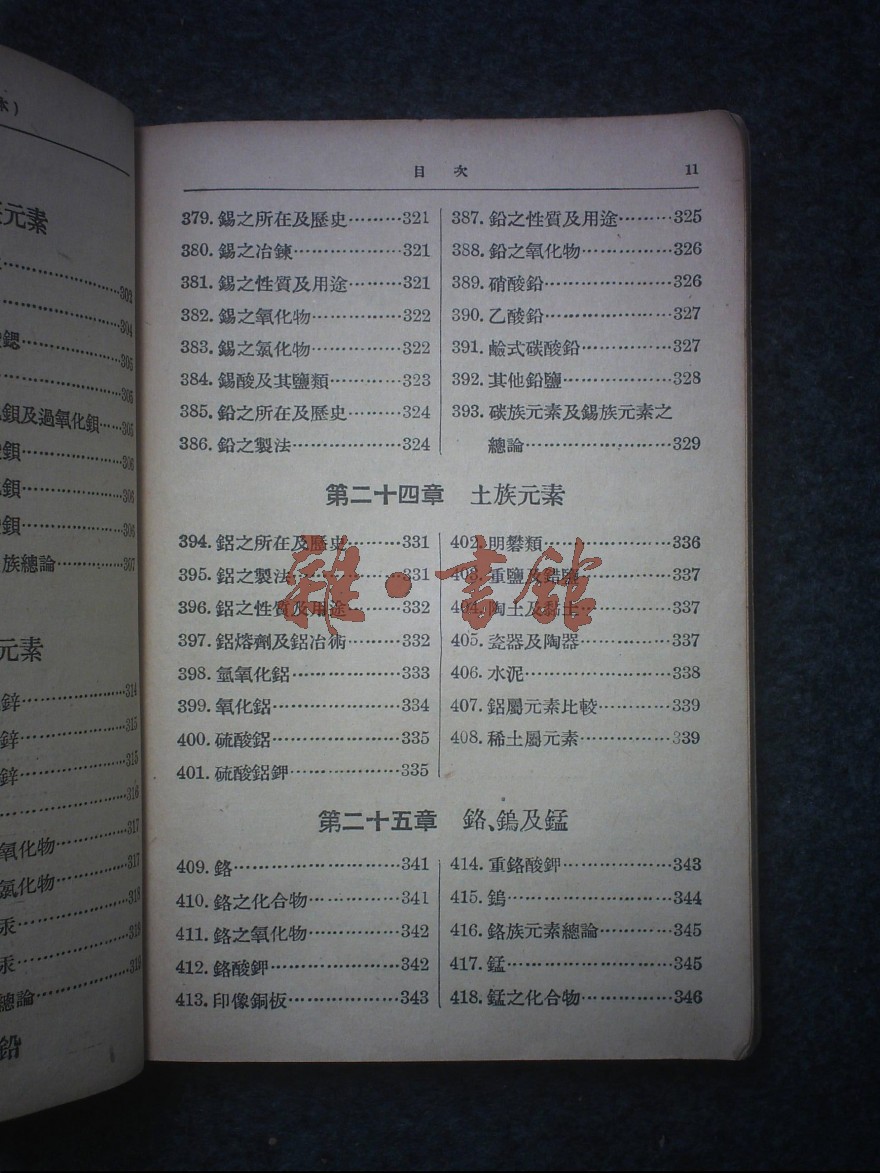 氏)
族元素
302
304
鍶 305
306
鋇及過氧化鋇 305
鋇 306
鋇 306
鋇 306
族總論 307
元素
鋅 314
鋅 315
鋅 315
316
氧化物 317
氯化物 317
汞 318
汞 318
總論 319
鉛
目 次 11
379. 錫之所在及歷史………321
380. 錫之冶鍊………321
381. 錫之性質及用途………321
382. 錫之氧化物………322
383. 錫之氯化物………322
384. 錫酸及其鹽類………323
385. 鉛之所在及歷史………324
386. 鉛之製法………324
387. 鉛之性質及用途………325
388. 鉛之氧化物………326
389. 硝酸鉛………326
390. 乙酸鉛………327
391. 鹼式碳酸鉛………327
392. 其他鉛鹽………328
393. 碳族元素及錫族元素之
總論………329
第二十四章 土族元素
394. 鋁之所在及歷史………331
395. 鋁之製法………331
396. 鋁之性質及用途………332
397. 鋁熔劑及鋁冶術………332
398. 氫氧化鋁………333
399. 氧化鋁………334
400. 硫酸鋁………335
401. 硫酸鋁鉀………335
402. 明礬類………336
403. 重鹽及錯鹽………337
404. 陶土及黏土………337
405. 瓷器及陶器………337
406. 水泥………338
407. 鋁屬元素比較………339
408. 稀土屬元素………339
雜·書館
第二十五章 鉻、鎢及錳
409. 鉻………341
410. 鉻之化合物………341
411. 鉻之氧化物………342
412. 鉻酸鉀………342
413. 印像銅板………343
414. 重鉻酸鉀………343
415. 鎢………344
416. 鉻族元素總論………345
417. 錳………345
418. 錳之化合物………346